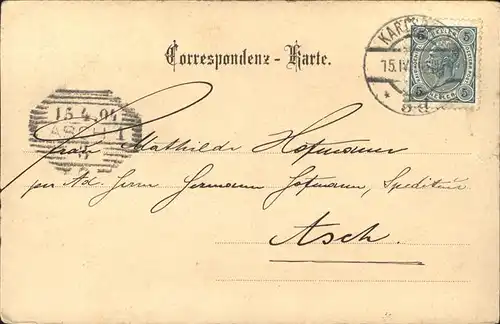 Correspondenz - Karte.
KARLSBAD
15.IV
5
5
5
5
15.4.01
ASCH 1
Frau Mathilde Hofmann
per Ad. Herrn Hermann Hofmann, Spediteur
Asch.